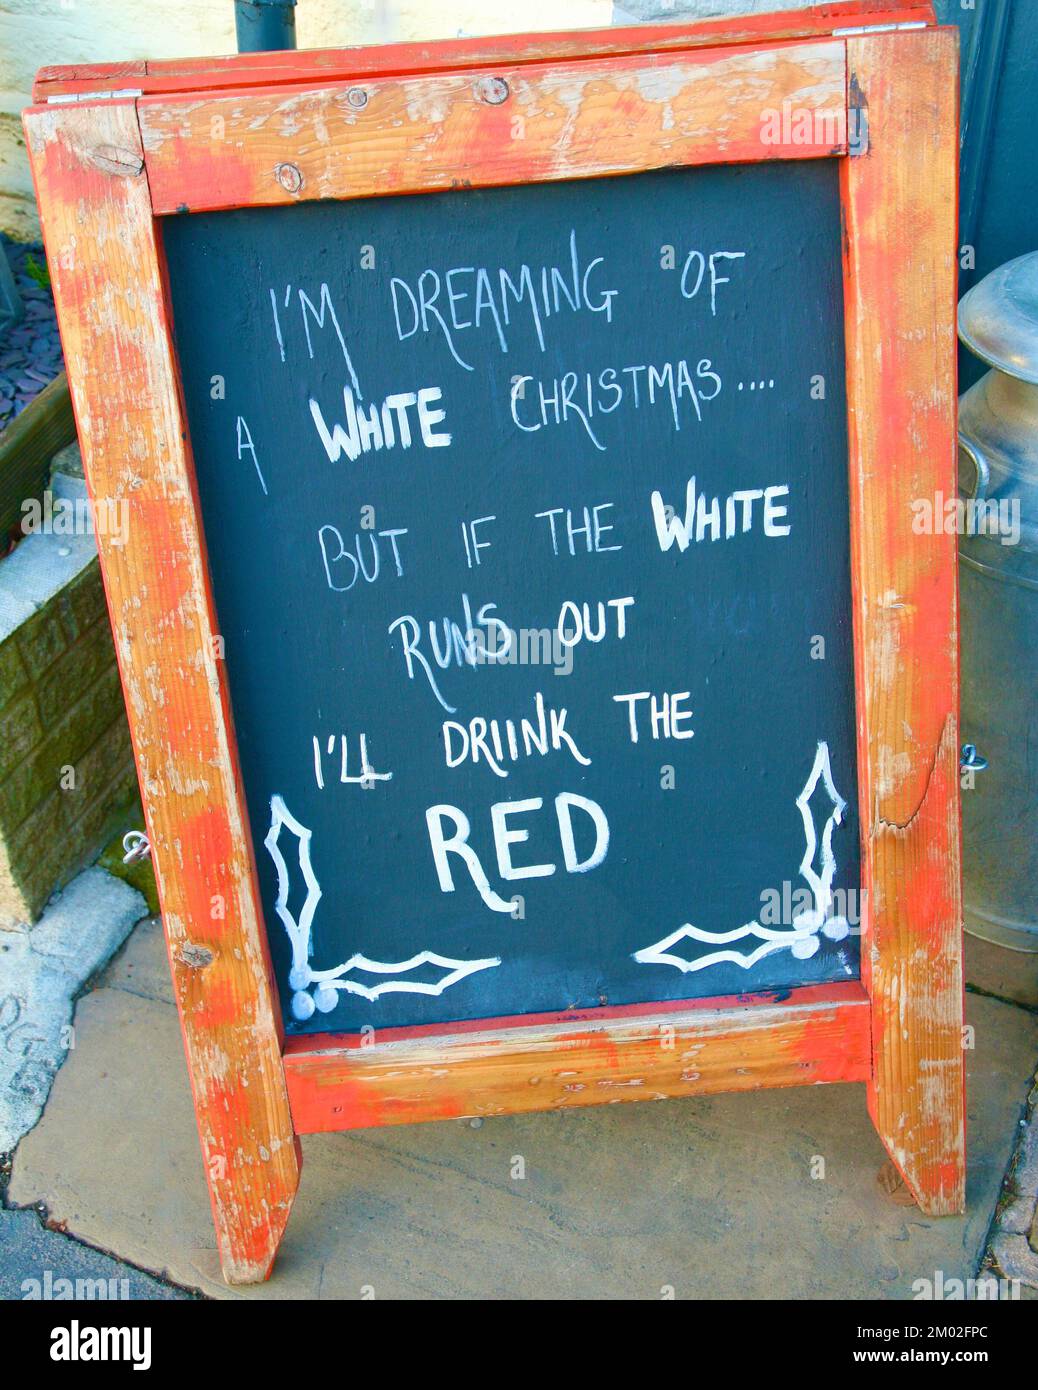 I'M DREAMING OF
A WHITE CHRISTMAS....
BUT IF THE WHITE
RUNS OUT
I'LL DRIINK THE
RED
alamy
Image ID: 2M02FPC
www.alamy.com